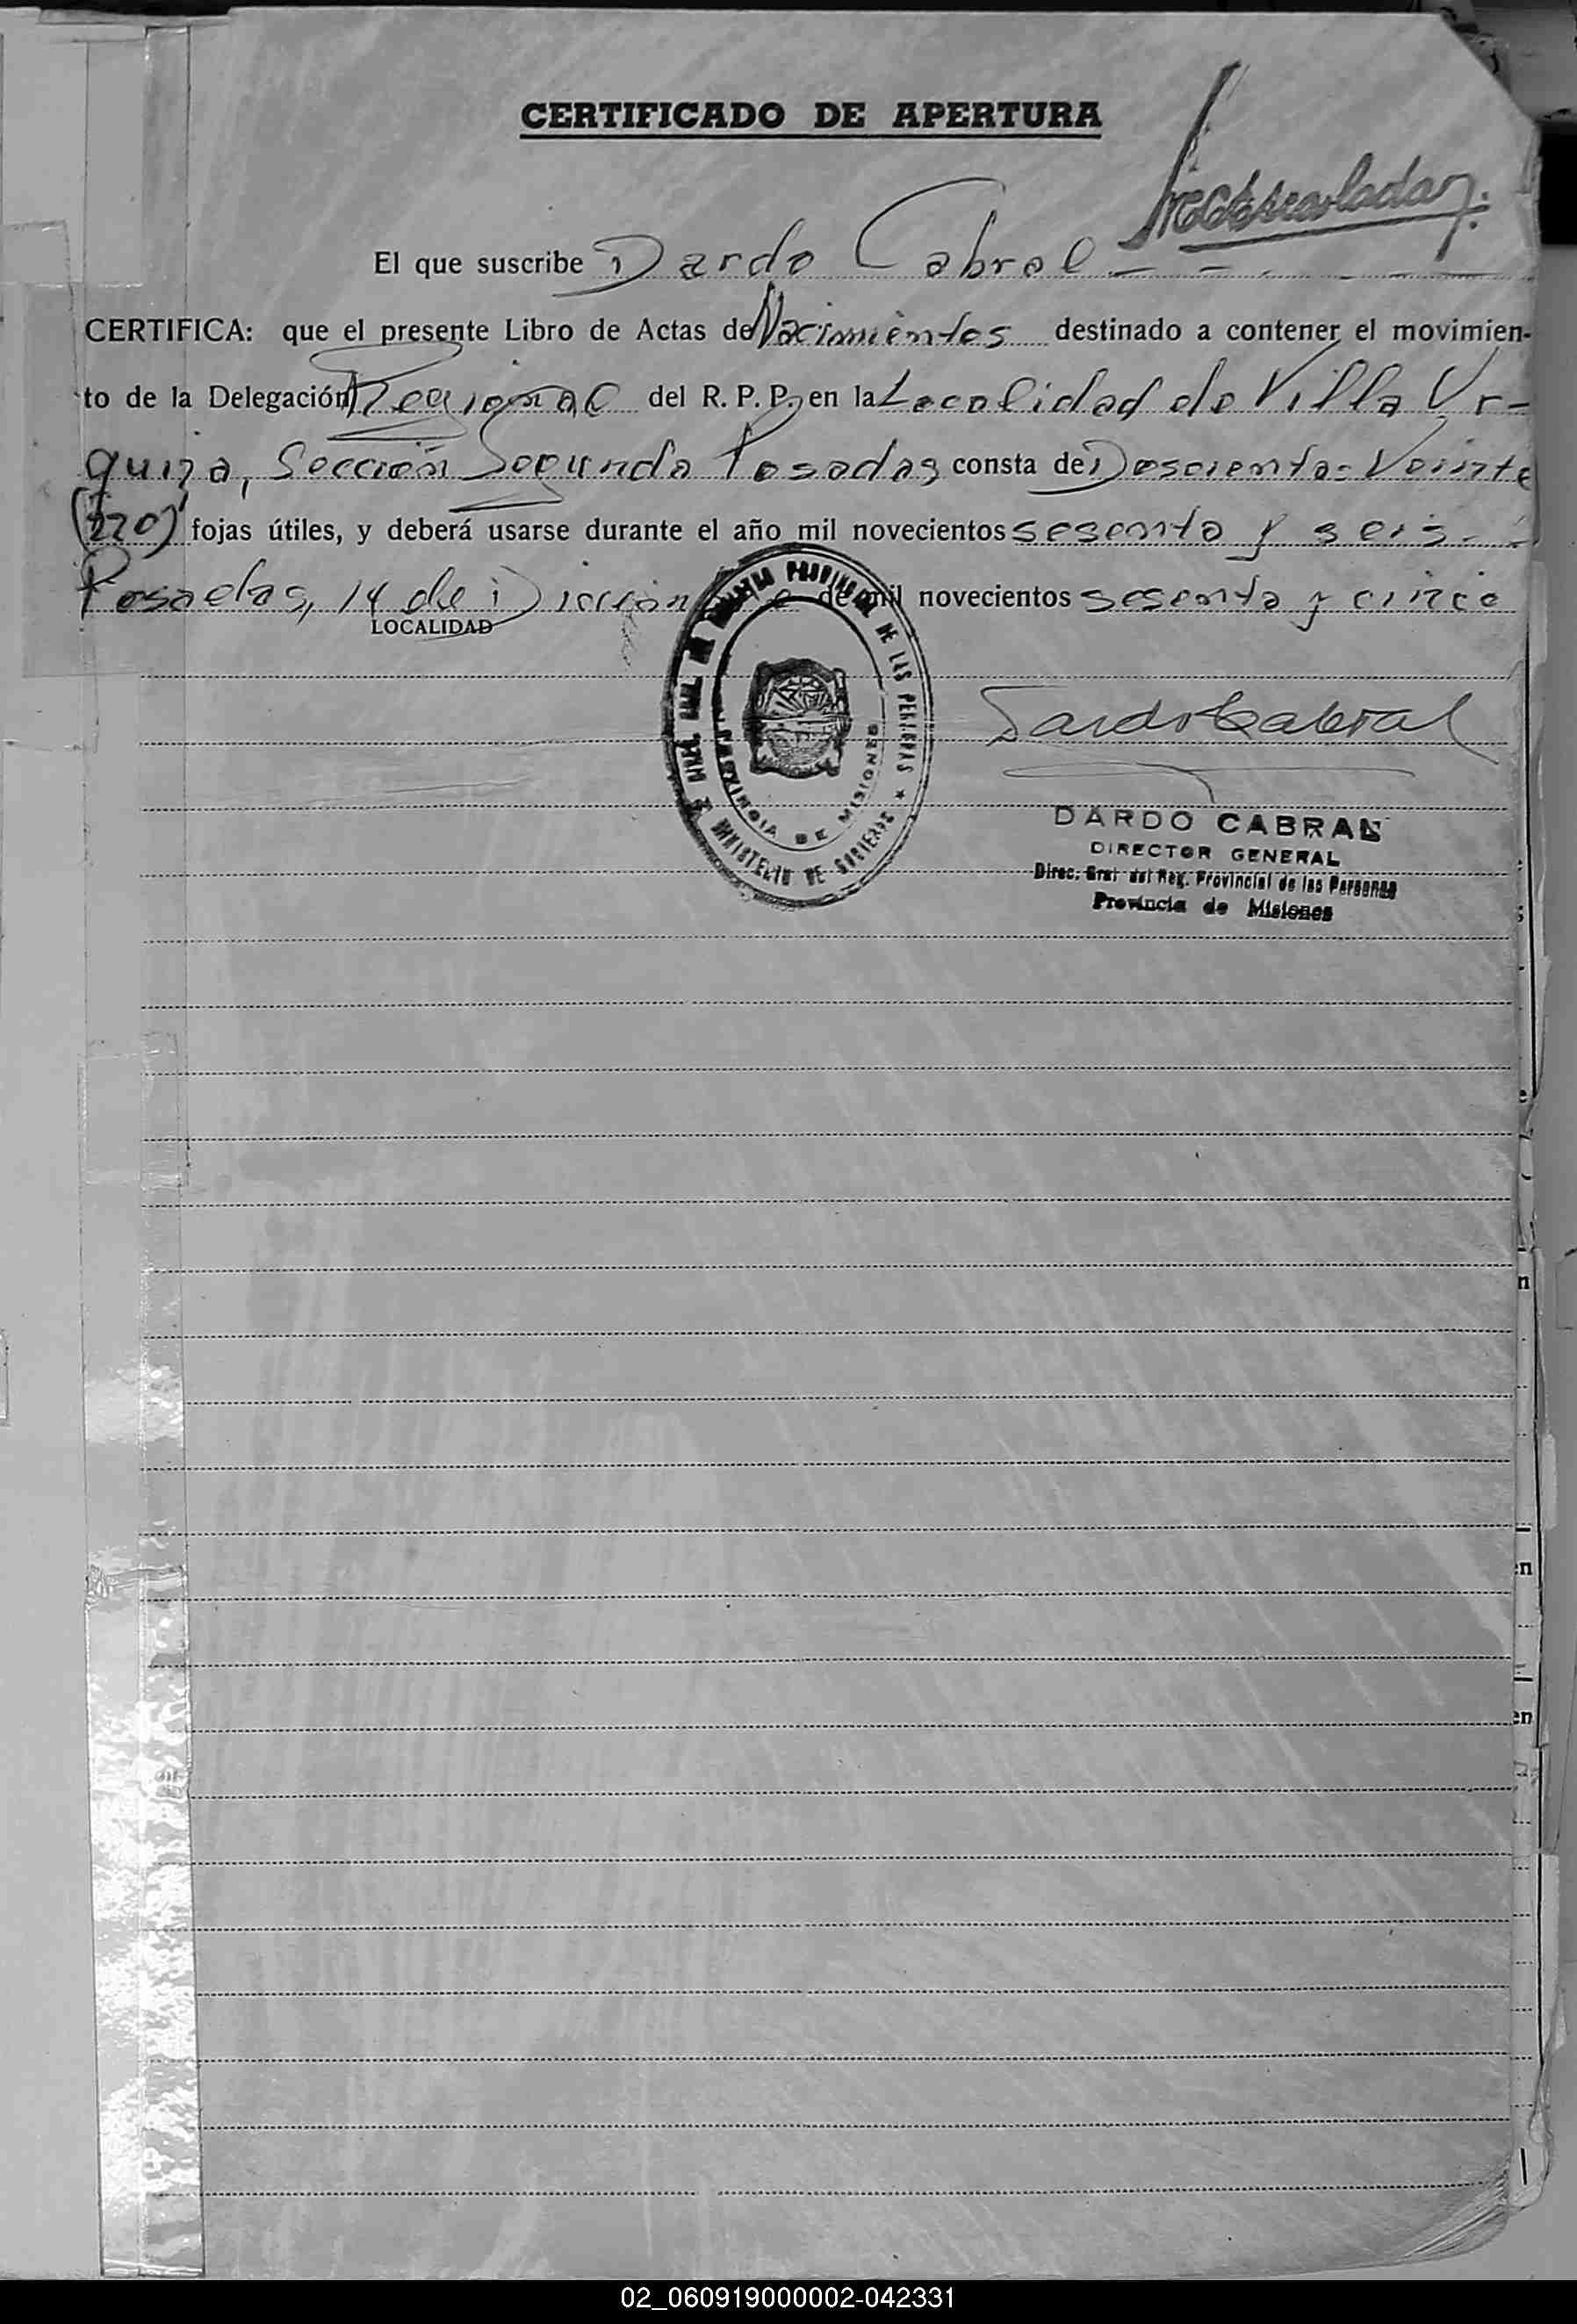 CERTIFICADO DE APERTURA
El que suscribe Dardo Cabral
CERTIFICA: que el presente Libro de Actas de Nacimientos destinado a contener el movimien-
to de la Delegación Regional del R. P. P. en la Localidad de Villa Ur-
quiza, Sección Segunda Posadas consta de Doscientas Veinte
(220) fojas útiles, y deberá usarse durante el año mil novecientos sesenta y seis.
Posadas, 14 de Diciembre de mil novecientos sesenta y cinco
LOCALIDAD
PROVINCIAL DE LAS PERSONAS
PROVINCIA DE MISIONES
MINISTERIO DE GOBIERNO
Dardo Cabral
DARDO CABRAL
DIRECTOR GENERAL
Direc. Gral del Reg. Provincial de las Personas
Provincia de Misiones
02_060919000002-042331